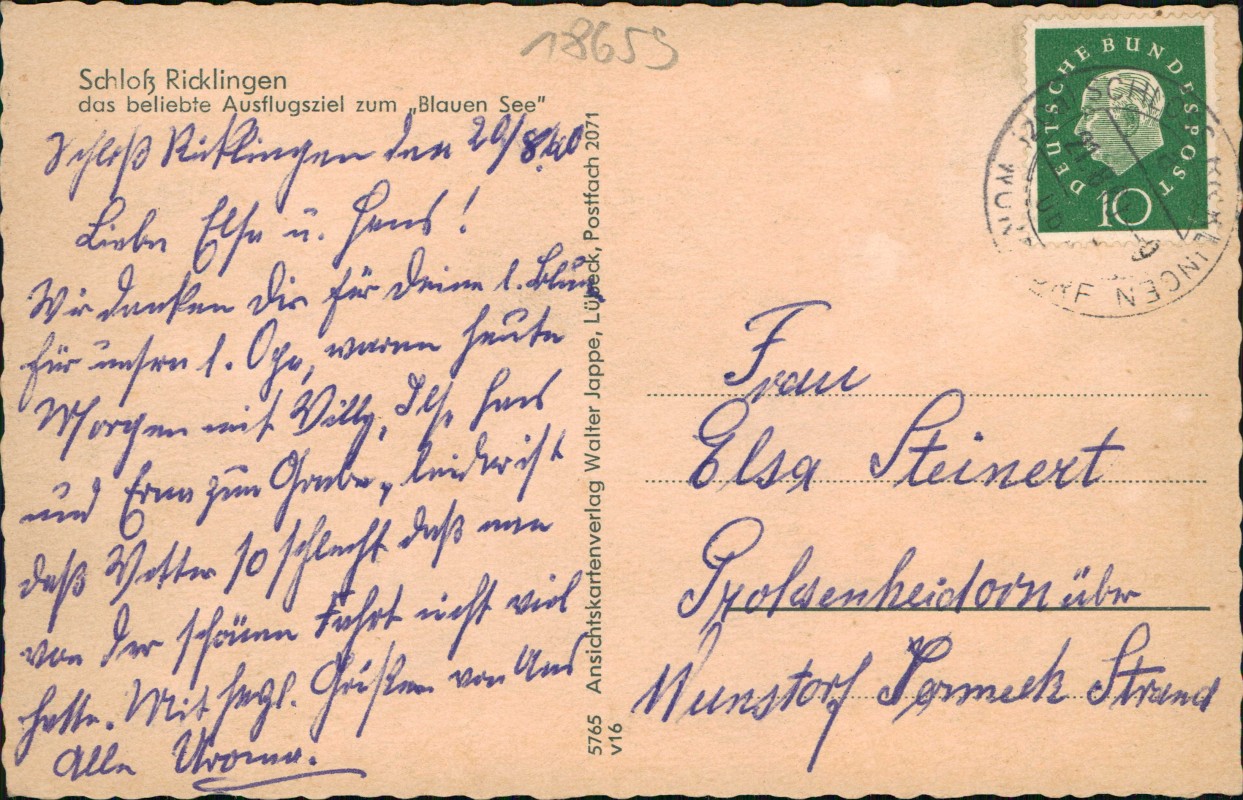 18659
Schloß Ricklingen
das beliebte Ausflugsziel zum „Blauen See"
Schloß Ricklingen den 20/8.60
Liebe Else u. Hans!
Wir danken Dir für Deine l. Blume
für unsern l. Opa, waren heute
Morgen mit Willy, Ilse Hans
und Erna zum Grabe, leider ist
daß Wetter so schlecht daß man
von der schönen Fahrt nicht viel
hatte. Mit hrzl. Grüßen von Uns
Alle Uroma.
5765 Ansichtskartenverlag Walter Jappe, Lübeck, Postfach 2071
v16
DEUTSCHE BUNDESPOST
10
SCHLOSS RICKLINGEN
Frau
Elsa Steinert
über
Wunstorf Strand